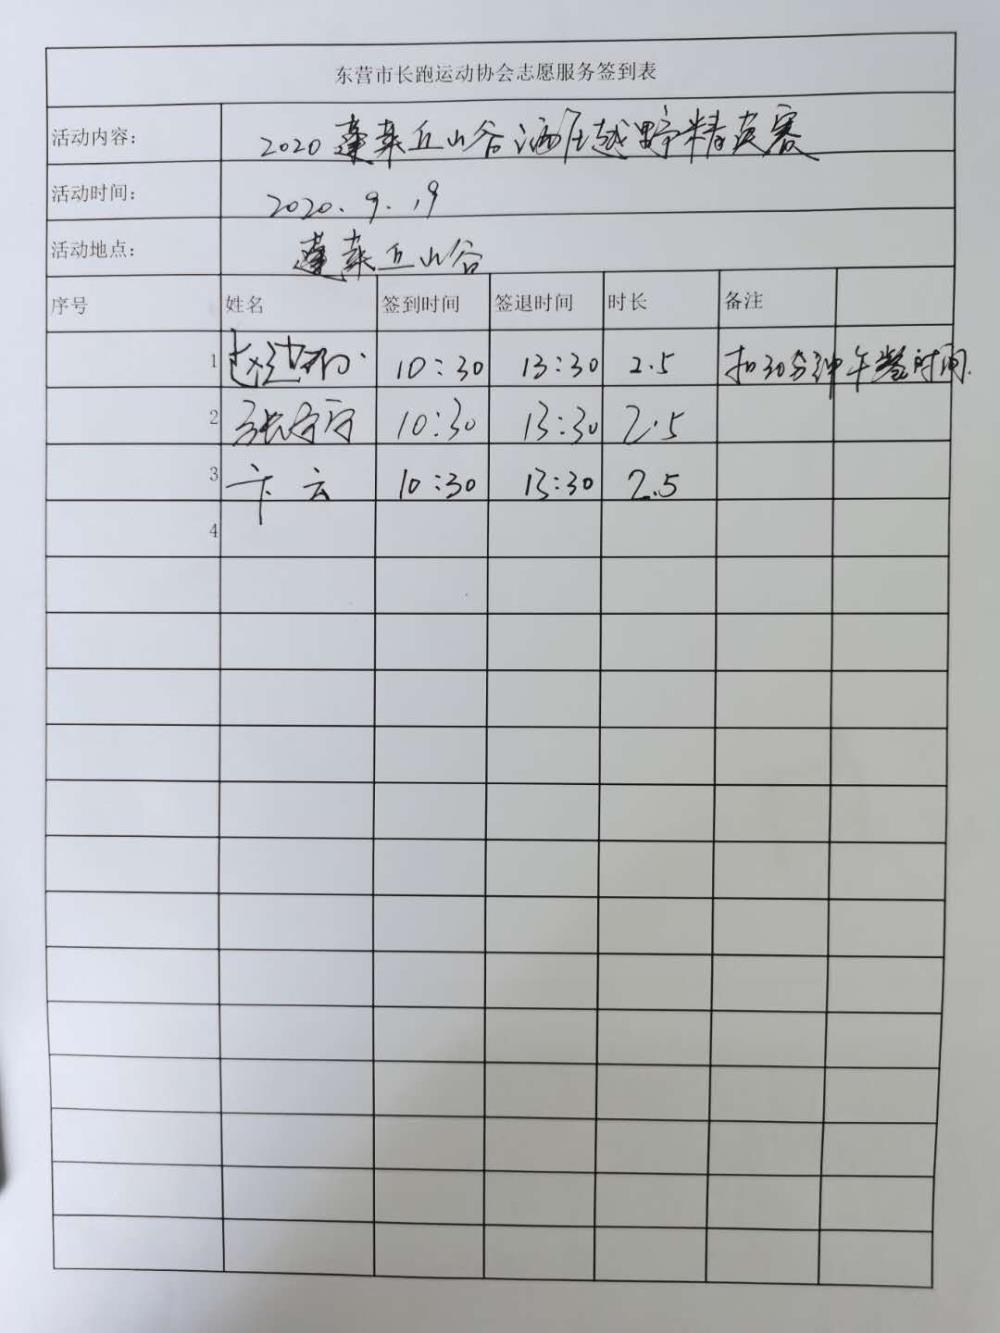 东营市长跑运动协会志愿服务签到表
活动内容： 2020 蓬莱丘山谷酒庄越野精英赛
活动时间： 2020.9.19
活动地点： 蓬莱丘山谷
序号 姓名 签到时间 签退时间 时长 备注
1 10:30 13:30 2.5 扣30分钟午餐时间.
2 张宁宁 10:30 13:30 2.5
3 卞云 10:30 13:30 2.5
4